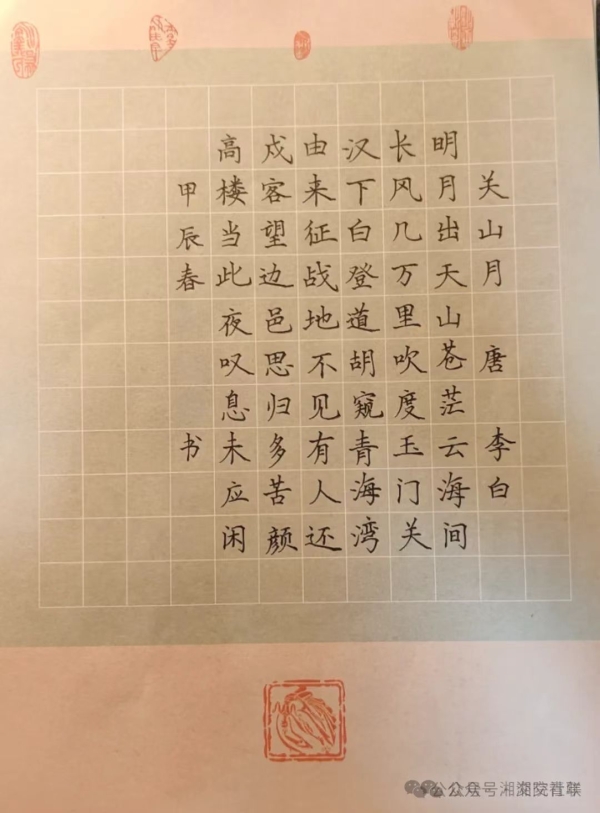 关山月 唐 李白
明月出天山苍茫云海间
长风几万里吹度玉门关
汉下白登道胡窥青海湾
由来征战地不见有人还
戍客望边邑思归多苦颜
高楼当此夜叹息未应闲
甲辰春 书